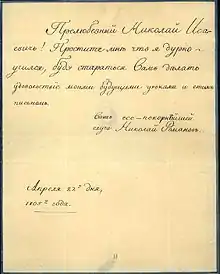 Прелюбезный Николай Иса-
вичь! Простите-мнѣ что я дурно-
учился, буду стараться Вамъ дѣлать
удовольствіе моими будущими уроками и етимъ
письмомъ.
Вашъ все-покорнѣйшей
слуга Николай Романовъ.
Апреля 22го дня,
года.